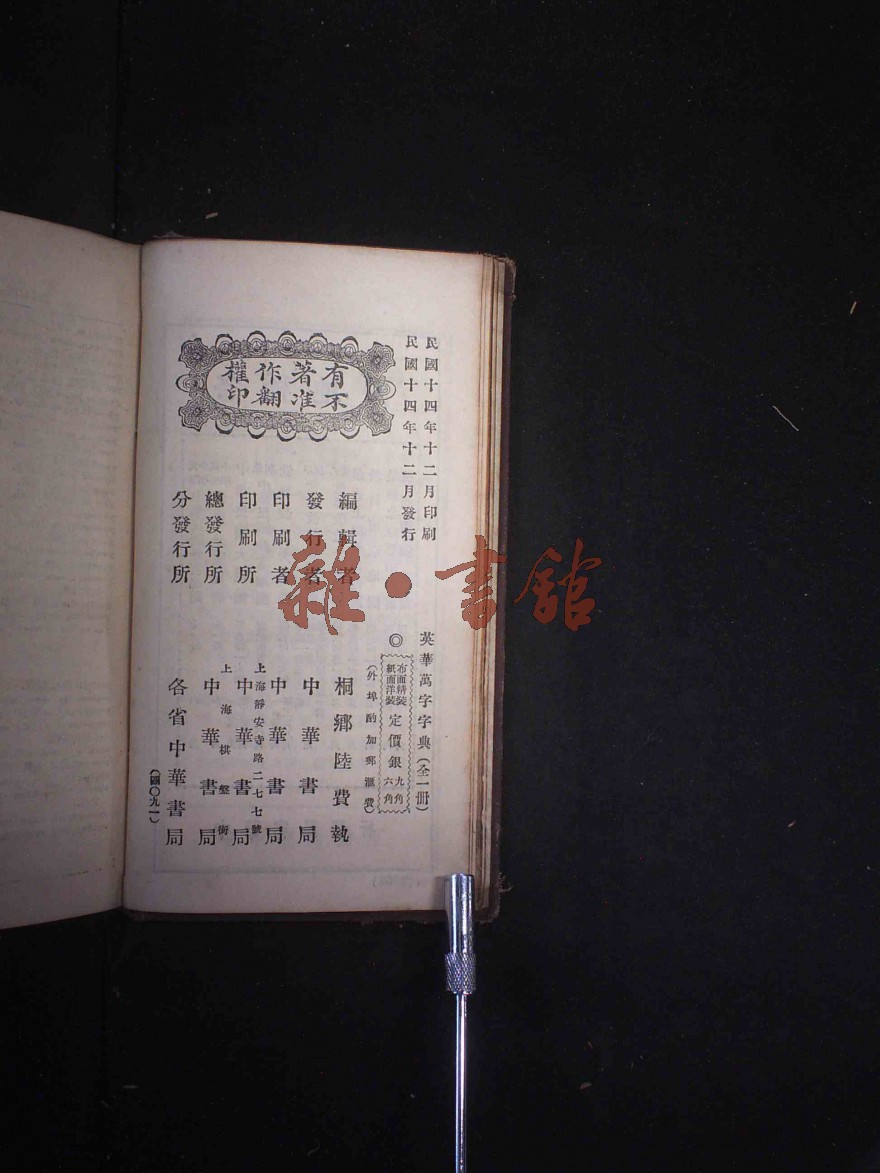 民國十四年十二月印刷
民國十四年十二月發行
有著作權
不准翻印
英華萬字字典(全一冊)
◎
布面精裝
紙面洋裝
定價銀
九角
六角
(外埠酌加郵滙費)
編輯者 桐鄉陸費執
發行者 中華書局
印刷者 中華書局
印刷所 上海靜安寺路二七七號 中華書局
總發行所 上海棋盤街 中華書局
分發行所 各省中華書局
雜·書館